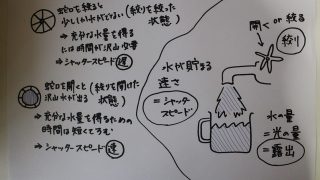 蛇口を絞ると
少ししか水がでない(絞りを絞った
状態)
⇒ 充分な水量を得る
には時間が沢山必要
⇒ シャッタースピード 遅
蛇口を開くと(絞りを開けた
沢山水が出る 状態)
⇒ 充分な水量を得るための
時間は短くてすむ
⇒ シャッタースピード 速
水が貯まる
速さ
=シャッター
スピード
開く or 絞る
絞り
水の量
=光の量
=露出